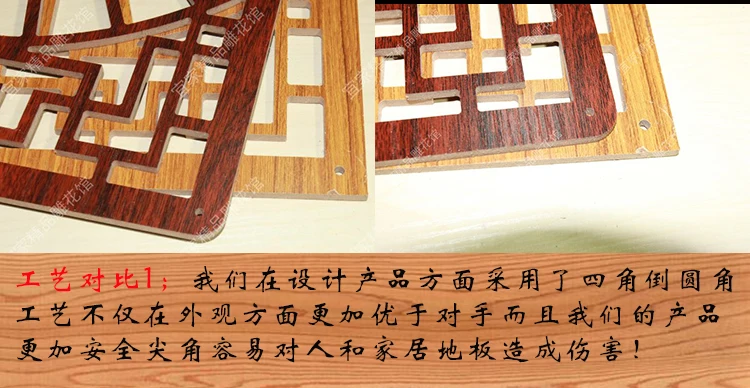 宜家精品雕花馆
宜家精品雕花馆
工艺对比1；我们在设计产品方面采用了四角倒圆角
工艺不仅在外观方面更加优于对手而且我们的产品
更加安全尖角容易对人和家居地板造成伤害！